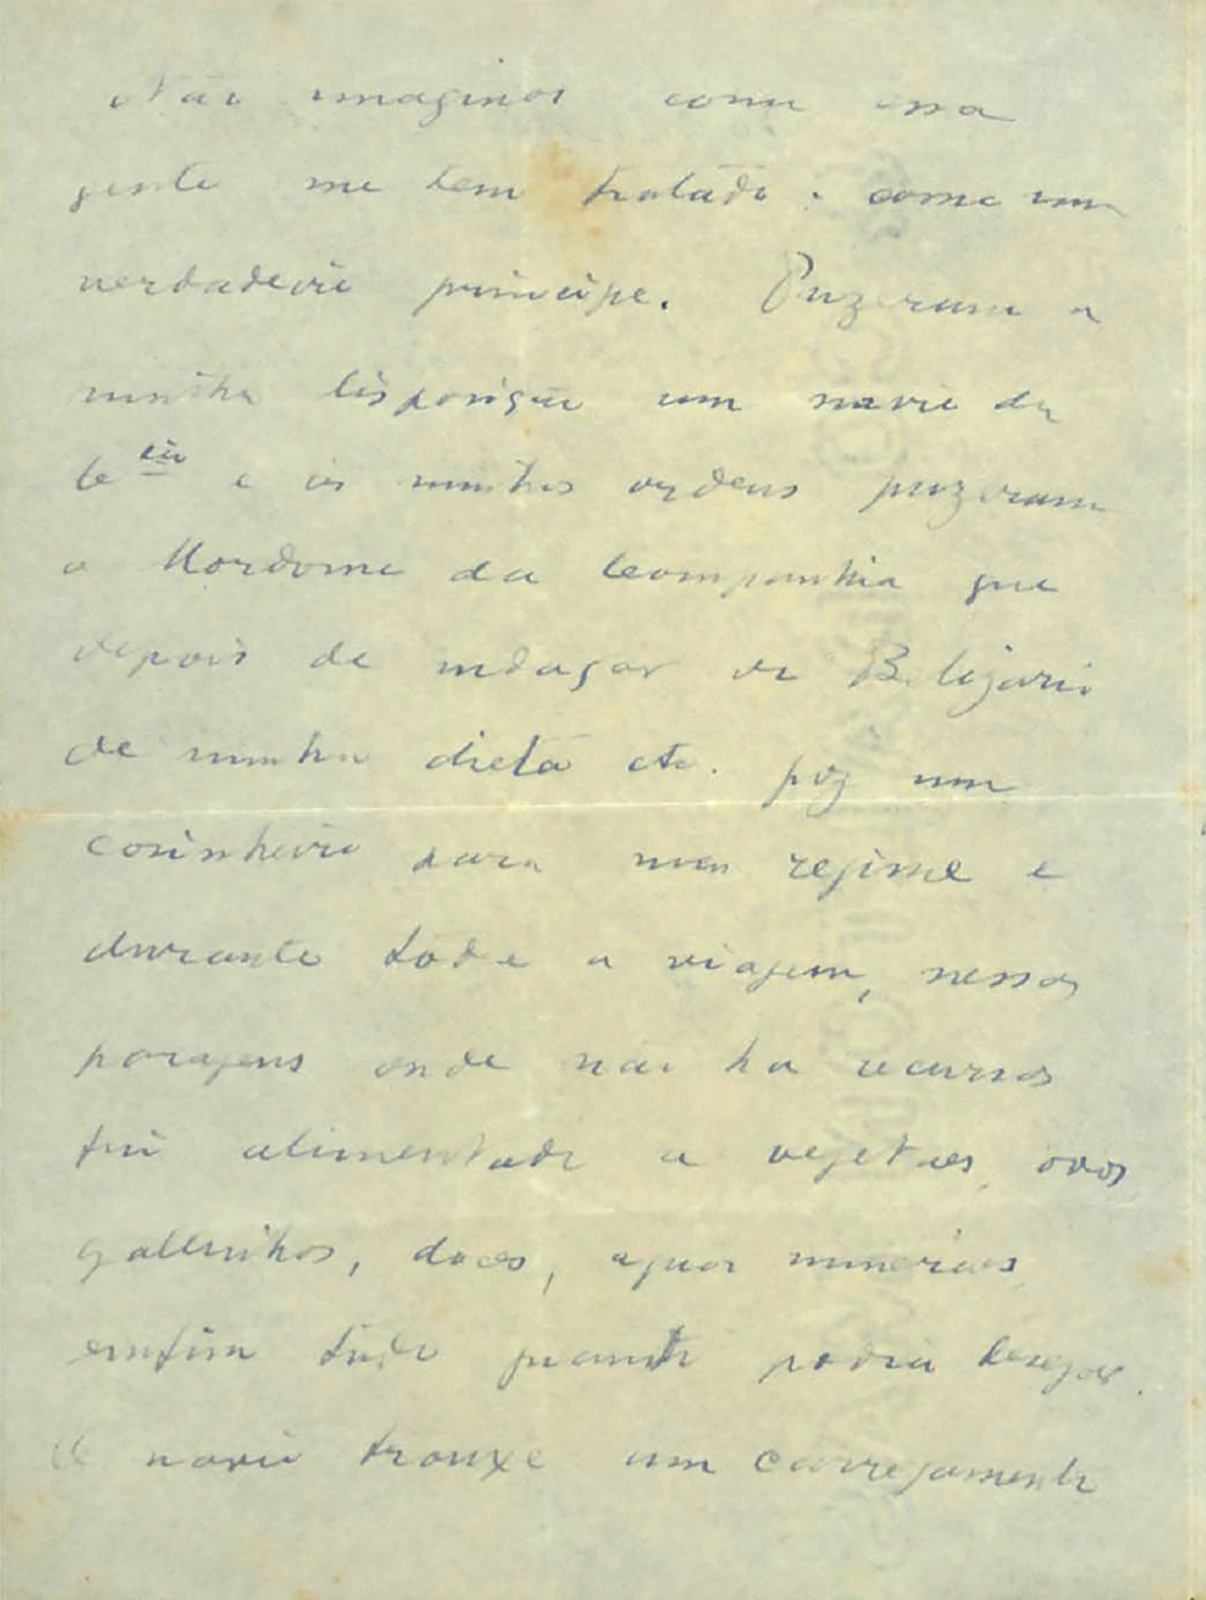 Não imaginas como essa
gente me tem tratado: como um
verdadeiro principe. Puzeram a
minha disposição um navio da
Cia e ás minhas ordens puzeram
o Mordomo da Companhia que
depois de indagar do Belizario
de minha dieta etc. poz um
cosinheiro para meu regime e
durante toda a viagem, nessas
paragens onde não ha recursos
fui alimentado a vegetaes, ovos
gallinhas, doces, aguas mineraes,
emfim tudo quanto podia desejar.
O navio trouxe um carregamento